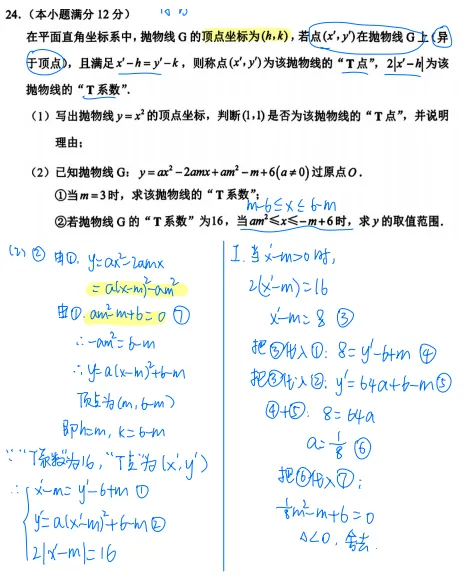 24.（本小题满分 12 分）
在平面直角坐标系中，抛物线 G 的顶点坐标为(h,k)，若点(x′,y′)在抛物线 G 上（异
于顶点），且满足 x′−h=y′−k，则称点(x′,y′)为该抛物线的“T 点”，2|x′−h|为该
抛物线的“T 系数”.
（1）写出抛物线 y=x²的顶点坐标，判断(1,1)是否为该抛物线的“T 点”，并说明
理由；
（2）已知抛物线 G：y=ax²−2amx+am²−m+6(a≠0)过原点O.
①当m=3时，求该抛物线的“T 系数”；
m-6≤x≤6-m
②若抛物线 G 的“T 系数”为16，当am²≤x≤−m+6时，求 y 的取值范围.
(2) ② 由①. y=ax²-2amx
=a(x-m)²-am²
由①. am²-m+6=0 ⑦
∴-am²=6-m
∴y=a(x-m)²+6-m
顶点为(m, 6-m)
即h=m, k=6-m
∵“T系数”为16, “T点”为(x′, y′)
∴ { x′-m=y′-6+m ①
y′=a(x′-m)²+6-m ②
2|x′-m|=16
I. 当x′-m>0时,
2(x′-m)=16
x′-m=8 ③
把③代入①: 8=y′-6+m ④
把③代入②: y′=64a+6-m ⑤
④+⑤: 8=64a
a=1/8 ⑥
把⑥代入⑦:
1/8m²-m+6=0
Δ<0, 舍去.